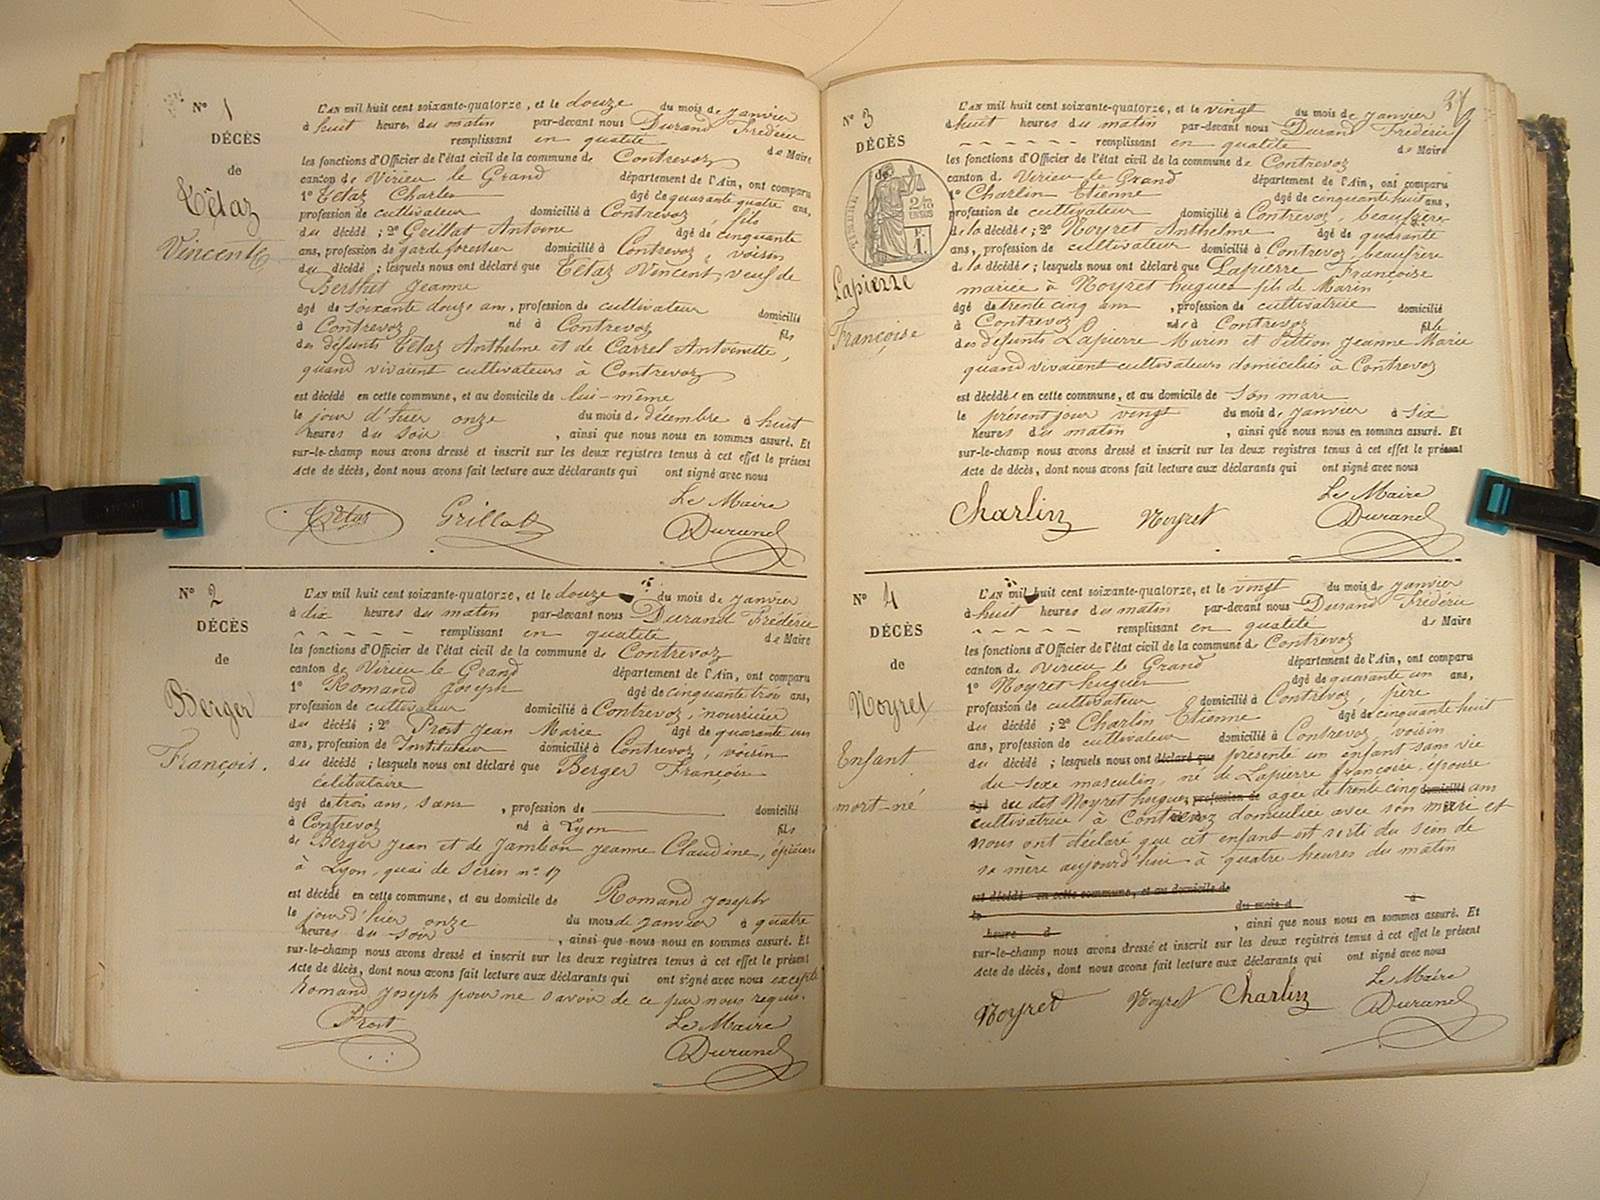 N° 1
DÉCÈS
de
Têtaz
Vincent
L'AN mil huit cent soixante-quatorze, et le douze du mois de janvier
à huit heures du matin par-devant nous Durand Frédéric
remplissant en qualité de Maire
les fonctions d'Officier de l'état civil de la commune de Contrevoz
canton de Virieu le Grand département de l'Ain, ont comparu
1° Têtaz Charles âgé de quarante quatre ans,
profession de cultivateur domicilié à Contrevoz, fils
du décédé ; 2° Grillat Antoine âgé de cinquante
ans, profession de garde forestier domicilié à Contrevoz, voisin
du décédé ; lesquels nous ont déclaré que Têtaz Vincent, veuf de
Berthet Jeanne
âgé de soixante douze ans, profession de cultivateur domicilié
à Contrevoz né à Contrevoz fils
des défunts Têtaz Anthelme et de Carrel Antoinette,
quand vivaient cultivateurs à Contrevoz
est décédé en cette commune, et au domicile de lui-même
le jour d'hier onze du mois de décembre à huit
heures du soir, ainsi que nous nous en sommes assuré. Et
sur-le-champ nous avons dressé et inscrit sur les deux registres tenus à cet effet le présent
Acte de décès, dont nous avons fait lecture aux déclarants qui ont signé avec nous
Le Maire
Têtaz Grillat Durand
N° 2
DÉCÈS
de
Berger
François.
L'AN mil huit cent soixante-quatorze, et le douze du mois de janvier
à dix heures du matin par-devant nous Durand Frédéric
remplissant en qualité de Maire
les fonctions d'Officier de l'état civil de la commune de Contrevoz
canton de Virieu le Grand département de l'Ain, ont comparu
1° Romand Joseph âgé de cinquante trois ans,
profession de cultivateur domicilié à Contrevoz, nourricier
du décédé ; 2° Prost Jean Marie âgé de quarante un
ans, profession de Instituteur domicilié à Contrevoz, voisin
du décédé ; lesquels nous ont déclaré que Berger François
célibataire
âgé de trois ans, sans, profession de domicilié
à Contrevoz né à Lyon fils
de Berger Jean et de Jambon Jeanne Claudine, épiciers
à Lyon, quai de Serin n° 17
est décédé en cette commune, et au domicile de Romand Joseph
le jour d'hier onze du mois de janvier à quatre
heures du soir, ainsi que nous nous en sommes assuré. Et
sur-le-champ nous avons dressé et inscrit sur les deux registres tenus à cet effet le présent
Acte de décès, dont nous avons fait lecture aux déclarants qui ont signé avec nous excepté
Romand Joseph pour ne savoir de ce par nous requis.
Prost Le Maire
Durand
37
N° 3
DÉCÈS
de
Lapierre
Françoise
L'AN mil huit cent soixante-quatorze, et le vingt du mois de janvier
à huit heures du matin par-devant nous Durand Frédéric
remplissant en qualité de Maire
les fonctions d'Officier de l'état civil de la commune de Contrevoz
canton de Virieu le Grand département de l'Ain, ont comparu
1° Charlin Etienne âgé de cinquante huit ans,
profession de cultivateur domicilié à Contrevoz, beaufrère
de la décédée ; 2° Noyret Anthelme âgé de quarante
ans, profession de cultivateur domicilié à Contrevoz, beaufrère
de la décédée ; lesquels nous ont déclaré que Lapierre Françoise
mariée à Noyret hugues fils de Marin
âgé de trente cinq ans, profession de cultivatrice domicilié
à Contrevoz née à Contrevoz fille
des défunts Lapierre Marin et Jeanne Marie
quand vivaient cultivateurs domiciliés à Contrevoz
est décédée en cette commune, et au domicile de son mari
le présent jour vingt du mois de janvier à six
heures du matin, ainsi que nous nous en sommes assuré. Et
sur-le-champ nous avons dressé et inscrit sur les deux registres tenus à cet effet le présent
Acte de décès, dont nous avons fait lecture aux déclarants qui ont signé avec nous
Le Maire
Charlin Noyret Durand
N° 4
DÉCÈS
de
Noyret
Enfant
mort-né
L'AN mil huit cent soixante-quatorze, et le vingt du mois de janvier
à huit heures du matin par-devant nous Durand Frédéric
remplissant en qualité de Maire
les fonctions d'Officier de l'état civil de la commune de Contrevoz
canton de Virieu le Grand département de l'Ain, ont comparu
1° Noyret hugues âgé de quarante un ans,
profession de cultivateur domicilié à Contrevoz, père
du décédé ; 2° Charlin Etienne âgé de cinquante huit
ans, profession de cultivateur domicilié à Contrevoz, voisin
du décédé ; lesquels nous ont déclaré que présenté un enfant sans vie
du sexe masculin, né de Lapierre françoise, épouse
âgé du dit Noyret hugues, profession de agée de trente cinq domicilié ans
cultivatrice à Contrevoz domiciliée avec son mari et
nous ont déclaré que cet enfant est sorti du sein de
sa mère aujourd'hui à quatre heures du matin
est décédé en cette commune, et au domicile de
le du mois d à
heure d, ainsi que nous nous en sommes assuré. Et
sur-le-champ nous avons dressé et inscrit sur les deux registres tenus à cet effet le présent
Acte de décès, dont nous avons fait lecture aux déclarants qui ont signé avec nous
Le Maire
Noyret Noyret Charlin Durand